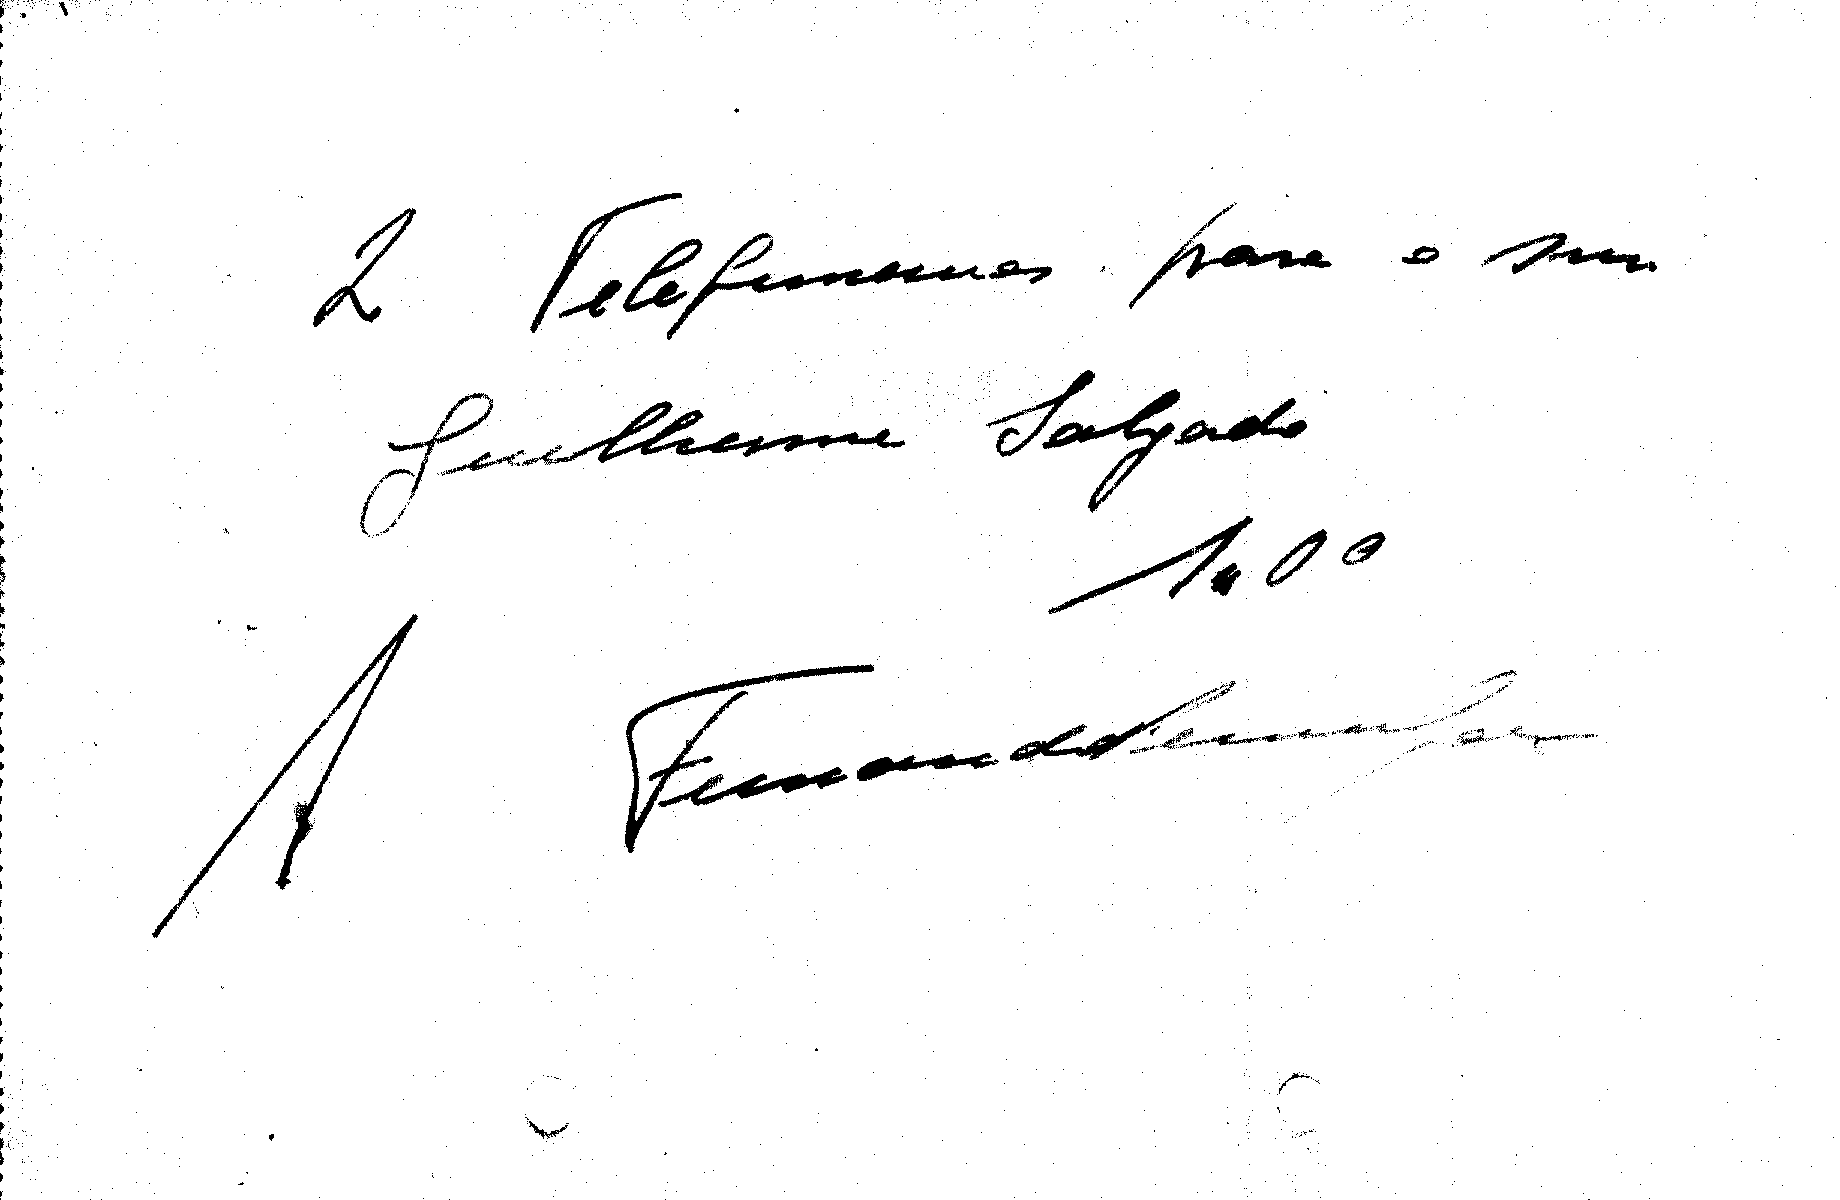 2 Telefonemas para o snr.
Guilherme Salgado
1.00
Fernando